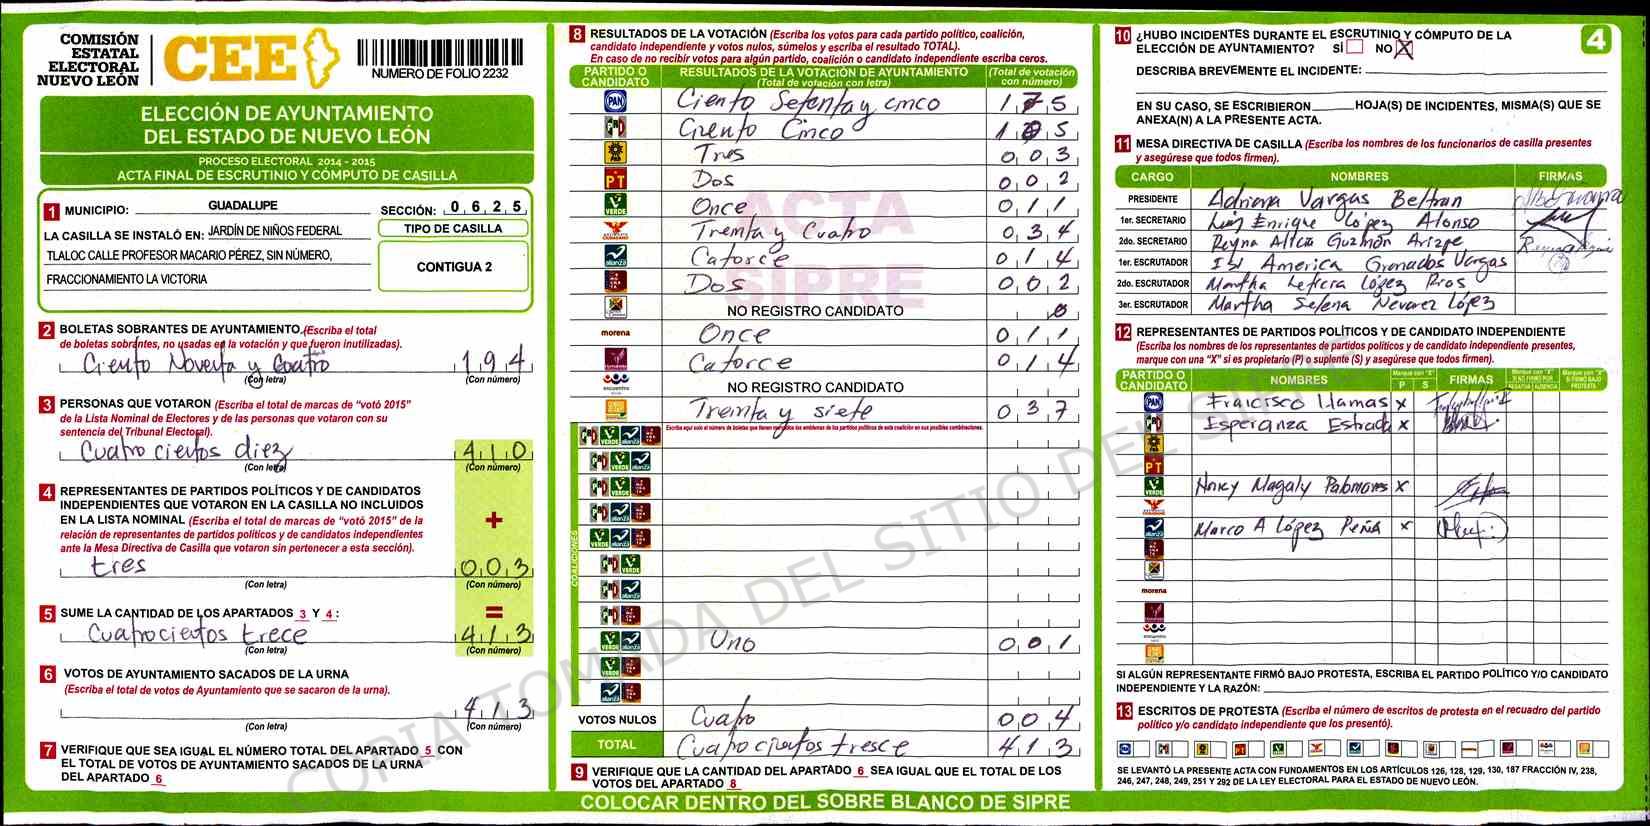 COMISIÓN
ESTATAL
ELECTORAL
NUEVO LEÓN
CEE
NUMERO DE FOLIO 2232
ELECCIÓN DE AYUNTAMIENTO
DEL ESTADO DE NUEVO LEÓN
PROCESO ELECTORAL 2014 - 2015
ACTA FINAL DE ESCRUTINIO Y CÓMPUTO DE CASILLA
1 MUNICIPIO: GUADALUPE SECCIÓN: 0 6 2 5
LA CASILLA SE INSTALÓ EN: JARDÍN DE NIÑOS FEDERAL
TLALOC CALLE PROFESOR MACARIO PÉREZ, SIN NÚMERO,
FRACCIONAMIENTO LA VICTORIA
TIPO DE CASILLA
CONTIGUA 2
2 BOLETAS SOBRANTES DE AYUNTAMIENTO. (Escriba el total
de boletas sobrantes, no usadas en la votación y que fueron inutilizadas).
Ciento Noventa y Cuatro 1 9 4
(Con letra) (Con número)
3 PERSONAS QUE VOTARON (Escriba el total de marcas de “votó 2015”
de la Lista Nominal de Electores y de las personas que votaron con su
sentencia del Tribunal Electoral).
Cuatro cientos diez 4 1 0
(Con letra) (Con número)
4 REPRESENTANTES DE PARTIDOS POLÍTICOS Y DE CANDIDATOS
INDEPENDIENTES QUE VOTARON EN LA CASILLA NO INCLUIDOS
EN LA LISTA NOMINAL (Escriba el total de marcas de “votó 2015” de la
relación de representantes de partidos políticos y de candidatos independientes
ante la Mesa Directiva de Casilla que votaron sin pertenecer a esta sección).
+
tres 0 0 3
(Con letra) (Con número)
5 SUME LA CANTIDAD DE LOS APARTADOS 3 Y 4 : =
Cuatrocientos trece 4 1 3
(Con letra) (Con número)
6 VOTOS DE AYUNTAMIENTO SACADOS DE LA URNA
(Escriba el total de votos de Ayuntamiento que se sacaron de la urna).
4 1 3
(Con letra) (Con número)
7 VERIFIQUE QUE SEA IGUAL EL NÚMERO TOTAL DEL APARTADO 5 CON
EL TOTAL DE VOTOS DE AYUNTAMIENTO SACADOS DE LA URNA
DEL APARTADO 6
8 RESULTADOS DE LA VOTACIÓN (Escriba los votos para cada partido político, coalición,
candidato independiente y votos nulos, súmelos y escriba el resultado TOTAL).
En caso de no recibir votos para algún partido, coalición o candidato independiente escriba ceros.
PARTIDO O CANDIDATO RESULTADOS DE LA VOTACIÓN DE AYUNTAMIENTO (Total de votación con letra) (Total de votación con número)
PAN Ciento Setenta y cinco 1 7 5
PRD Ciento Cinco 1 0 5
Tres 0 0 3
PT Dos 0 0 2
VERDE Once 0 1 1
Treinta y Cuatro 0 3 4
alianza Catorce 0 1 4
Dos 0 0 2
NO REGISTRO CANDIDATO 0
morena Once 0 1 1
Catorce 0 1 4
encuentro NO REGISTRO CANDIDATO
Treinta y siete 0 3 7
COALICIONES
Escriba aquí solo el número de boletas que tienen marcados los emblemas de los partidos políticos de esta coalición en sus posibles combinaciones.
Uno 0 0 1
VOTOS NULOS Cuatro 0 0 4
TOTAL Cuatrocientos tresce 4 1 3
9 VERIFIQUE QUE LA CANTIDAD DEL APARTADO 6 SEA IGUAL QUE EL TOTAL DE LOS
VOTOS DEL APARTADO 8
ACTA
SIPRE
COPIA TOMADA DEL SITIO DEL SIPRE
10 ¿HUBO INCIDENTES DURANTE EL ESCRUTINIO Y CÓMPUTO DE LA
ELECCIÓN DE AYUNTAMIENTO? SÍ NO X
4
DESCRIBA BREVEMENTE EL INCIDENTE:
EN SU CASO, SE ESCRIBIERON HOJA(S) DE INCIDENTES, MISMA(S) QUE SE
ANEXA(N) A LA PRESENTE ACTA.
11 MESA DIRECTIVA DE CASILLA (Escriba los nombres de los funcionarios de casilla presentes
y asegúrese que todos firmen).
CARGO NOMBRES FIRMAS
PRESIDENTE Adriana Vargas Beltran
1er. SECRETARIO Luis Enrique López Alonso
2do. SECRETARIO Reyna Alicia Guzmán Arizpe
1er. ESCRUTADOR America Granados Vargas
2do. ESCRUTADOR Martha Leticia López Rios
3er. ESCRUTADOR Martha Selena Nevarez López
12 REPRESENTANTES DE PARTIDOS POLÍTICOS Y DE CANDIDATO INDEPENDIENTE
(Escriba los nombres de los representantes de partidos políticos y de candidato independiente presentes,
marque con una “X” si es propietario (P) o suplente (S) y asegúrese que todos firmen).
PARTIDO O CANDIDATO NOMBRES Marque con “X” P S FIRMAS Marque con “X” SI NO FIRMÓ POR NEGATIVA AUSENCIA Marque con “X” SI FIRMÓ BAJO PROTESTA
PAN Francisco Llamas X
Esperanza Estrada X
PT
VERDE Magaly Palomares X
alianza Marco A López Peña X
morena
encuentro
SI ALGÚN REPRESENTANTE FIRMÓ BAJO PROTESTA, ESCRIBA EL PARTIDO POLÍTICO Y/O CANDIDATO
INDEPENDIENTE Y LA RAZÓN:
13 ESCRITOS DE PROTESTA (Escriba el número de escritos de protesta en el recuadro del partido
político y/o candidato independiente que los presentó).
SE LEVANTÓ LA PRESENTE ACTA CON FUNDAMENTOS EN LOS ARTÍCULOS 126, 128, 129, 130, 187 FRACCIÓN IV, 238,
246, 247, 248, 249, 251 Y 292 DE LA LEY ELECTORAL PARA EL ESTADO DE NUEVO LEÓN.
COLOCAR DENTRO DEL SOBRE BLANCO DE SIPRE